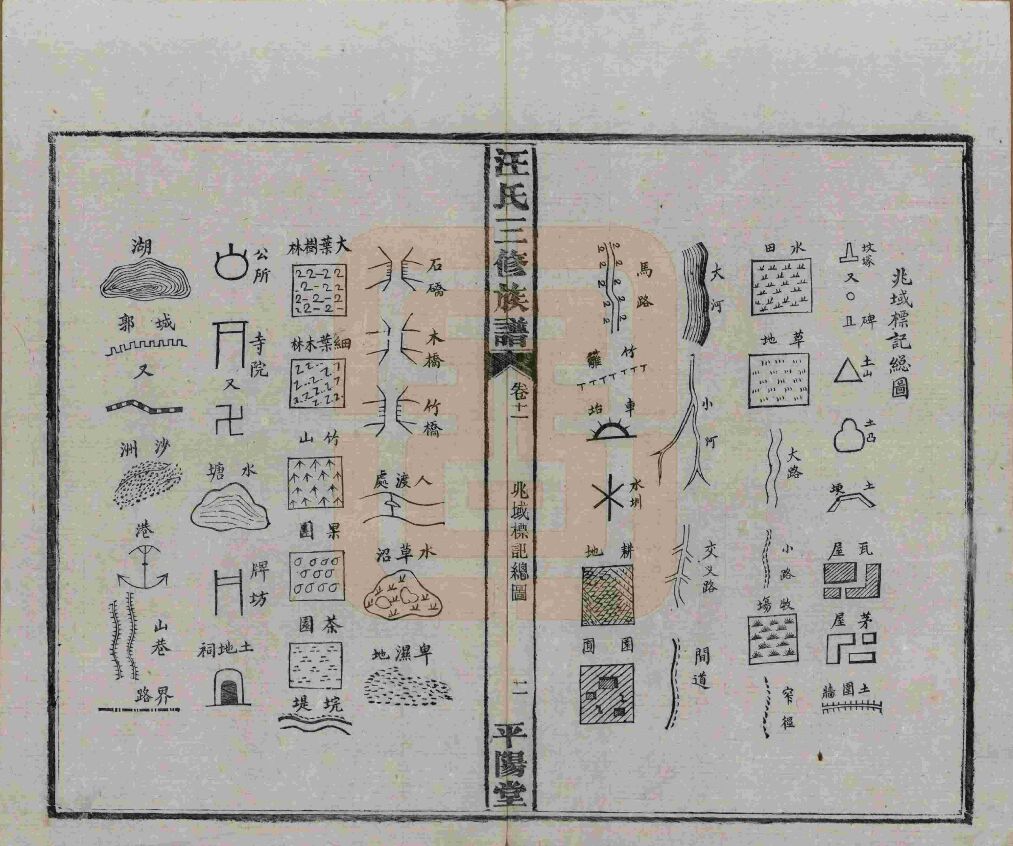 兆域標記總圖
墳塚
又
碑
土山
土凸
土埂
瓦屋
茅屋
土圍牆
水田
草地
大路
小路
牧塲
窄徑
大河
小河
交叉路
間道
馬路
竹籬
車坮
水圳
耕地
園囿
汪氏三修族譜
卷十一
兆域標記總圖
二
平陽堂
石橋
木橋
竹橋
人渡處
水草沼
卑濕地
大葉樹林
細葉木林
竹山
果園
茶園
垸堤
公所
寺院
又
水塘
牌坊
土地祠
湖
城郭
又
沙洲
港
山巷
界路